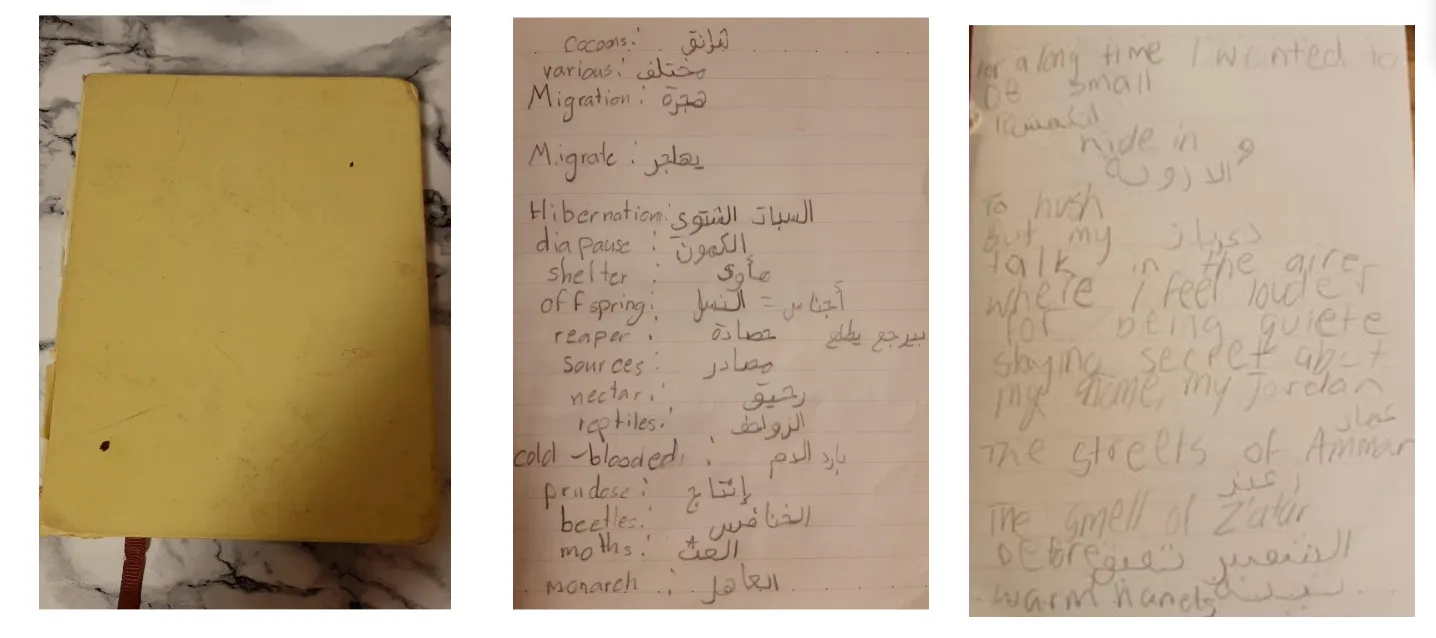 cocoons: شرانق
various: مختلف
Migration: هجرة
Migrate: يهاجر
Hibernation: السبات الشتوي
diapause: الكمون
shelter: مأوى
offspring: أجناس = النسل
reaper: حصادة بيرجع يطلع
sources: مصادر
nectar: رحيق
reptiles: الزواحف
cold-blooded: بارد الدم
prudose: إنتاج
beetles: الخنافس
moths: العث
monarch: العاهل
For a long time I wanted to
be small
hide in و
To hush
But my
talk in the aire,
where I feel louder
for being quiete
staying secret abut
my home, my Jordan
عمان
The streets of Amman
زعتر
The smell of Z'atar
warm hands